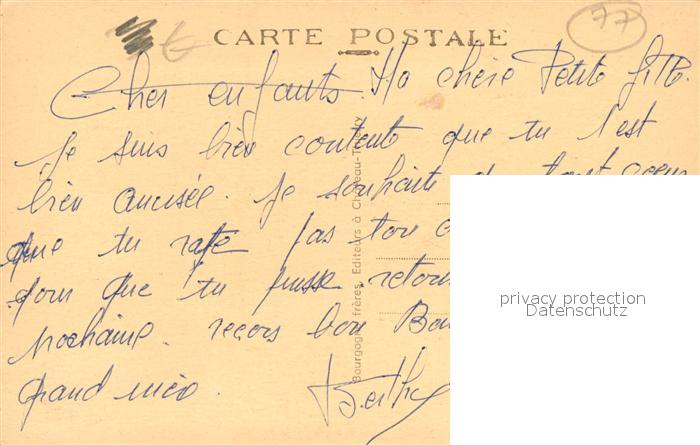 77
CARTE POSTALE
Cher enfants. Ma chère Petite fille.
Je suis bien contente que tu t'est
bien amusée. Je souhaite de tout coeur
que tu rate pas ton
pour que tu puisse retour
prochaine. reçois bon Bai
grand mère.
Berthe
Bourgogne frères, Editeurs à Château-Thierry
privacy protection
Datenschutz